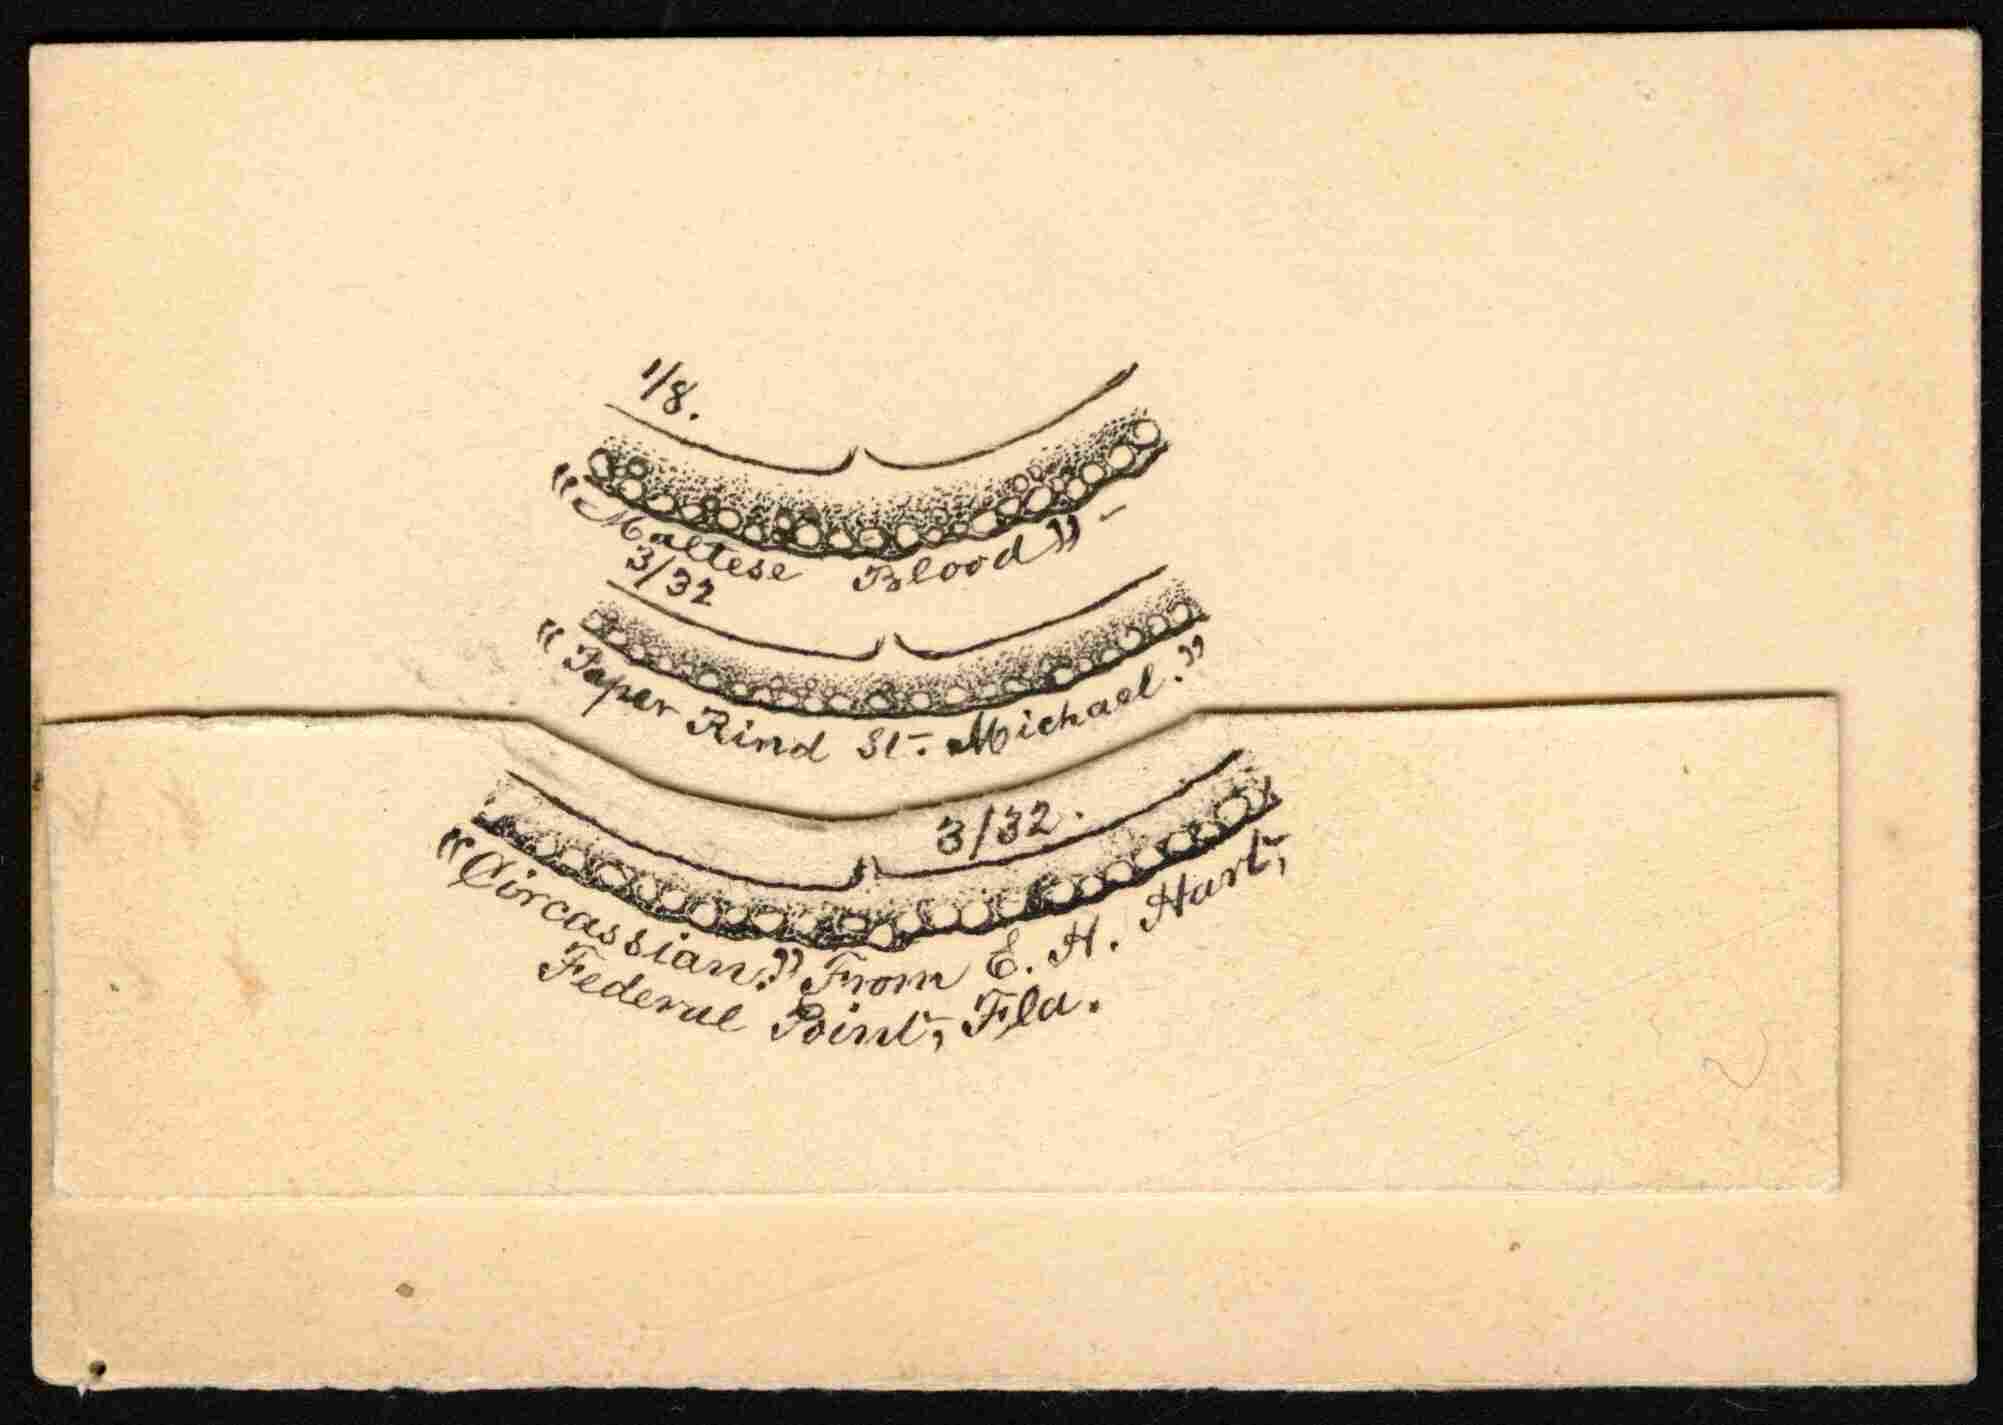 1/8.
"Maltese Blood" -
3/32
"Paper Rind St. Michael."
3/32.
"Circassian." From E. H. Hart,
Federal Point, Fla.